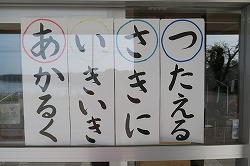 あかるく
いきいき
さきに
つたえる